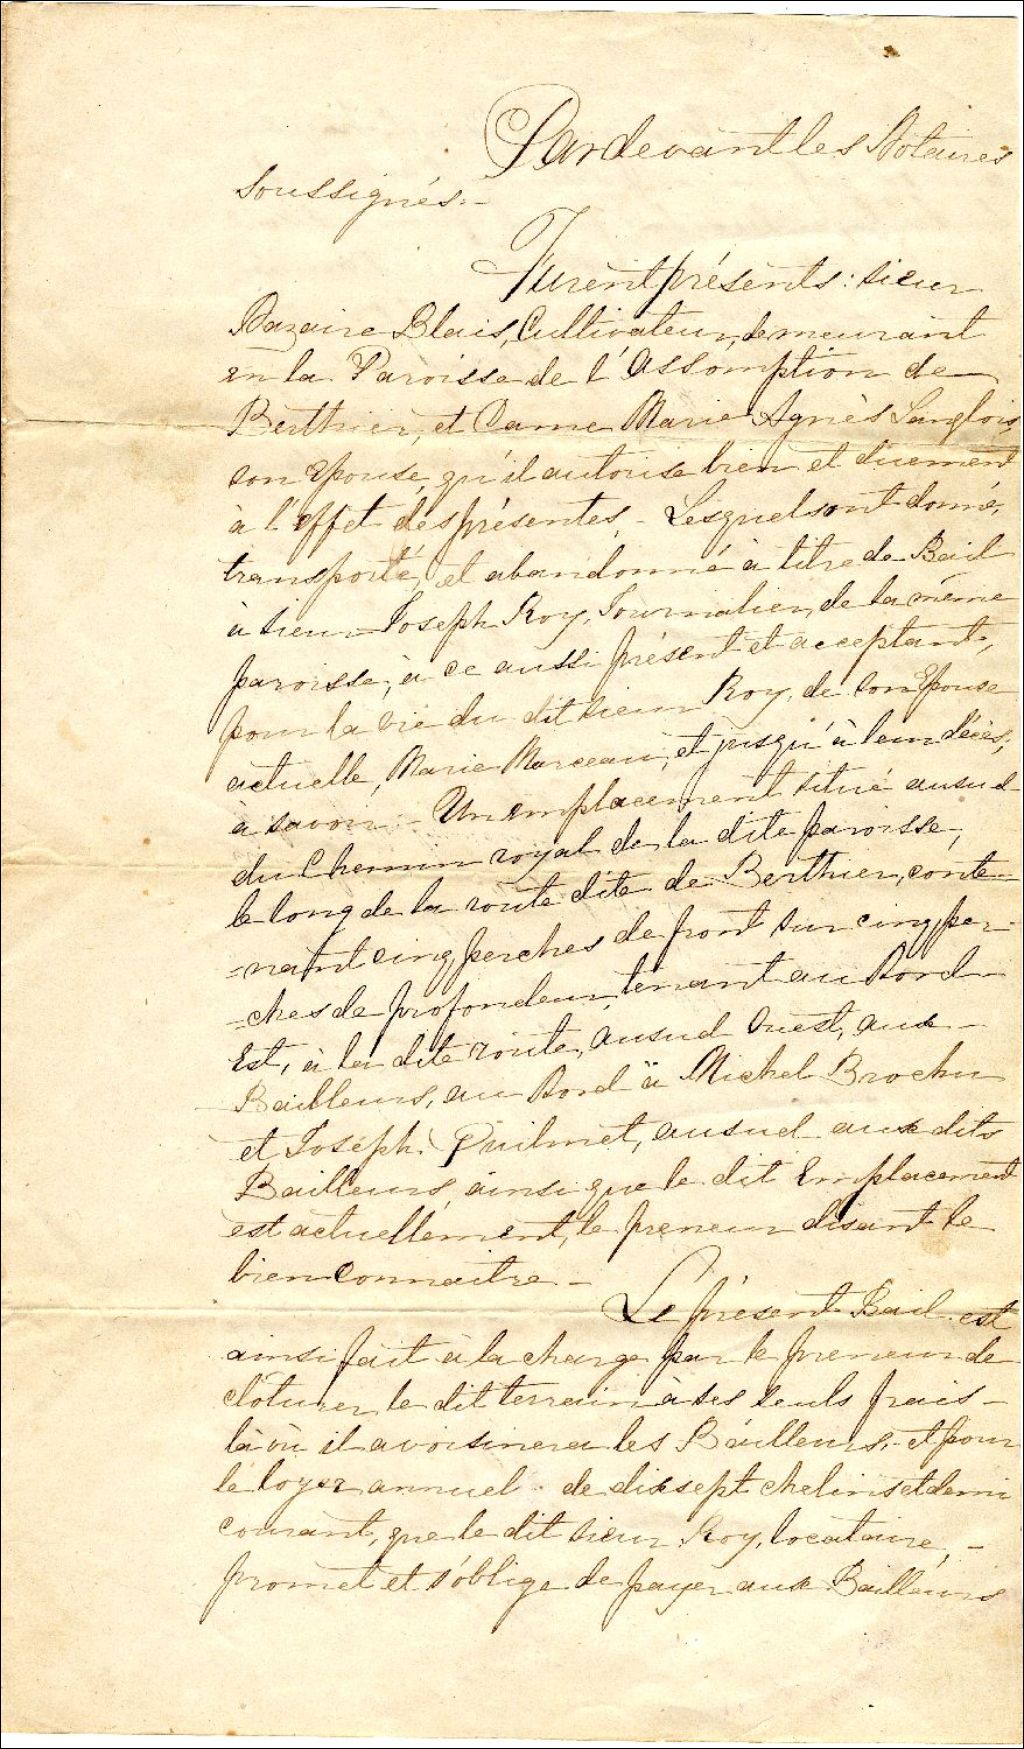 Pardevant les Notaires
soussignés:-
Furent présents: sieur
Nazaire Blais, Cultivateur, demeurant
en la Paroisse de l'Assomption de
Berthier, et Dame Marie Agnès Langlois,
son Epouse, qu'il autorise bien et duement
à l'effet des présentes, - Lesquels ont donné,
transporté, et abandonné à titre de Bail
à sieur Joseph Roy, Journalier, de la même
paroisse, à ce aussi présent et acceptant,
pour la vie du dit sieur Roy, de son Epouse
actuelle, Marie Marceau, et jusqu'à leur décès,
à savoir:- Un emplacement situé au sud
du Chemin royal de la dite paroisse,
le long de la route dite de Berthier, conte-
=nant cinq perches de front sur cinq per-
=ches de profondeur, tenant au Nord-
Est, à la dite route, au sud Ouest, aux-
Bailleurs, au Nord à Michel Brochu
et Joseph Guilmet, au sud aux dits
Bailleurs, ainsi que le dit Emplacement
est actuellement, le preneur disant le
bien connaitre -
Le présent Bail est
ainsi fait à la charge par le preneur de
clôturer le dit terrain à ses seuls frais -
là où il avoisinera les Bailleurs, - et pour
le loyer annuel - de dix sept chelins et demi
courant, que le dit sieur Roy, locataire, -
promet et s'oblige de payer aux Bailleurs